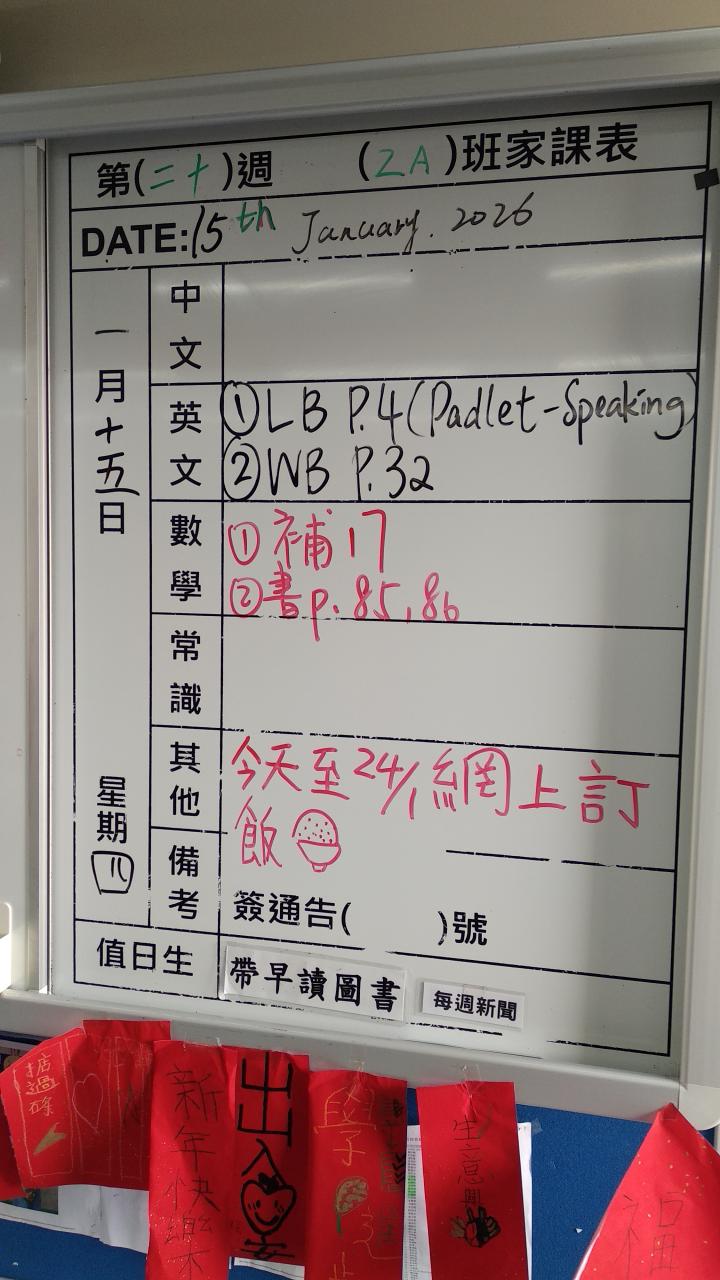 第(二十)週 (2A)班家課表
DATE: 15th January. 2026
一月十五日
星期四
中文
英文
①LB P.4(Padlet-Speaking)
②WB P.32
數學
①補17
②書p.85,86
常識
其他
今天至24/1網上訂
飯
備考
簽通告( )號
值日生
帶早讀圖書
每週新聞
新年快樂
出入
生意興
福